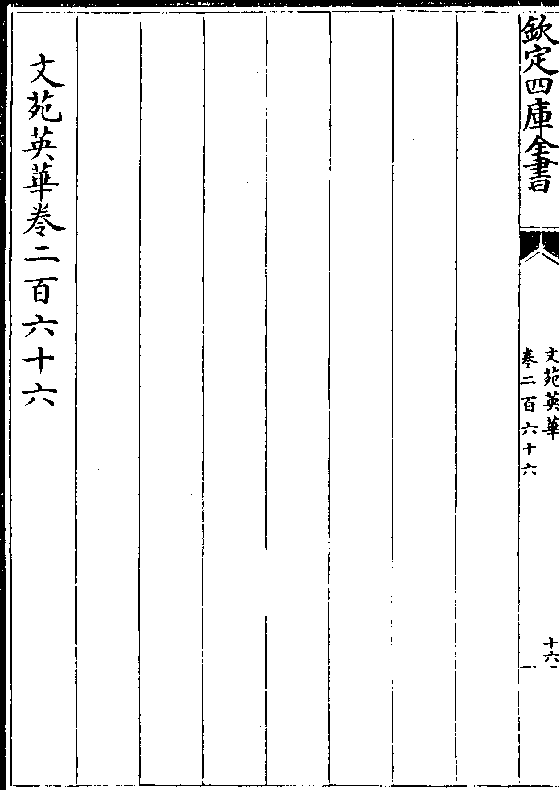 欽定四庫全書
文苑英華
卷二百六十六
十六
文苑英華卷二百六十六